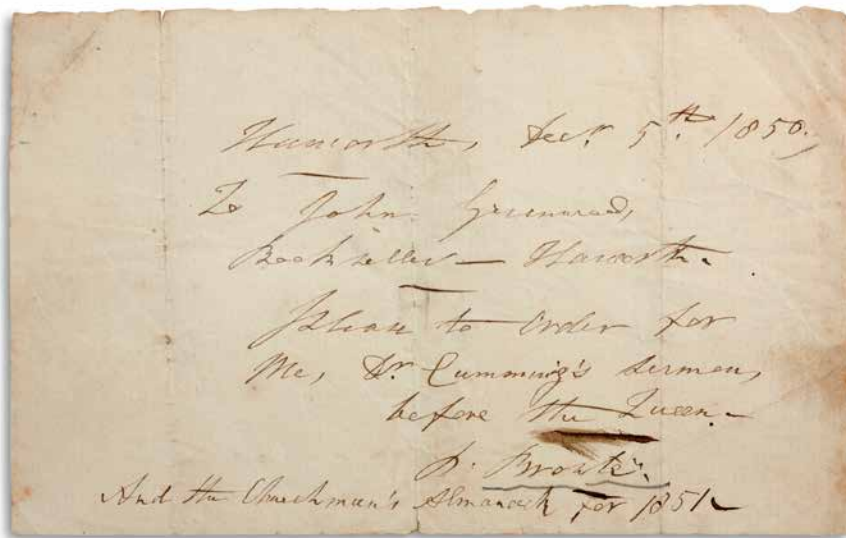 Haworth, Decr. 5th. 1850,
To John Greenwood,
Bookseller — Haworth.
Please to order for
Me, Dr. Cumming's Sermon,
before the Queen.—
P. Brontë.
And the Churchman's Almanack for 1851—